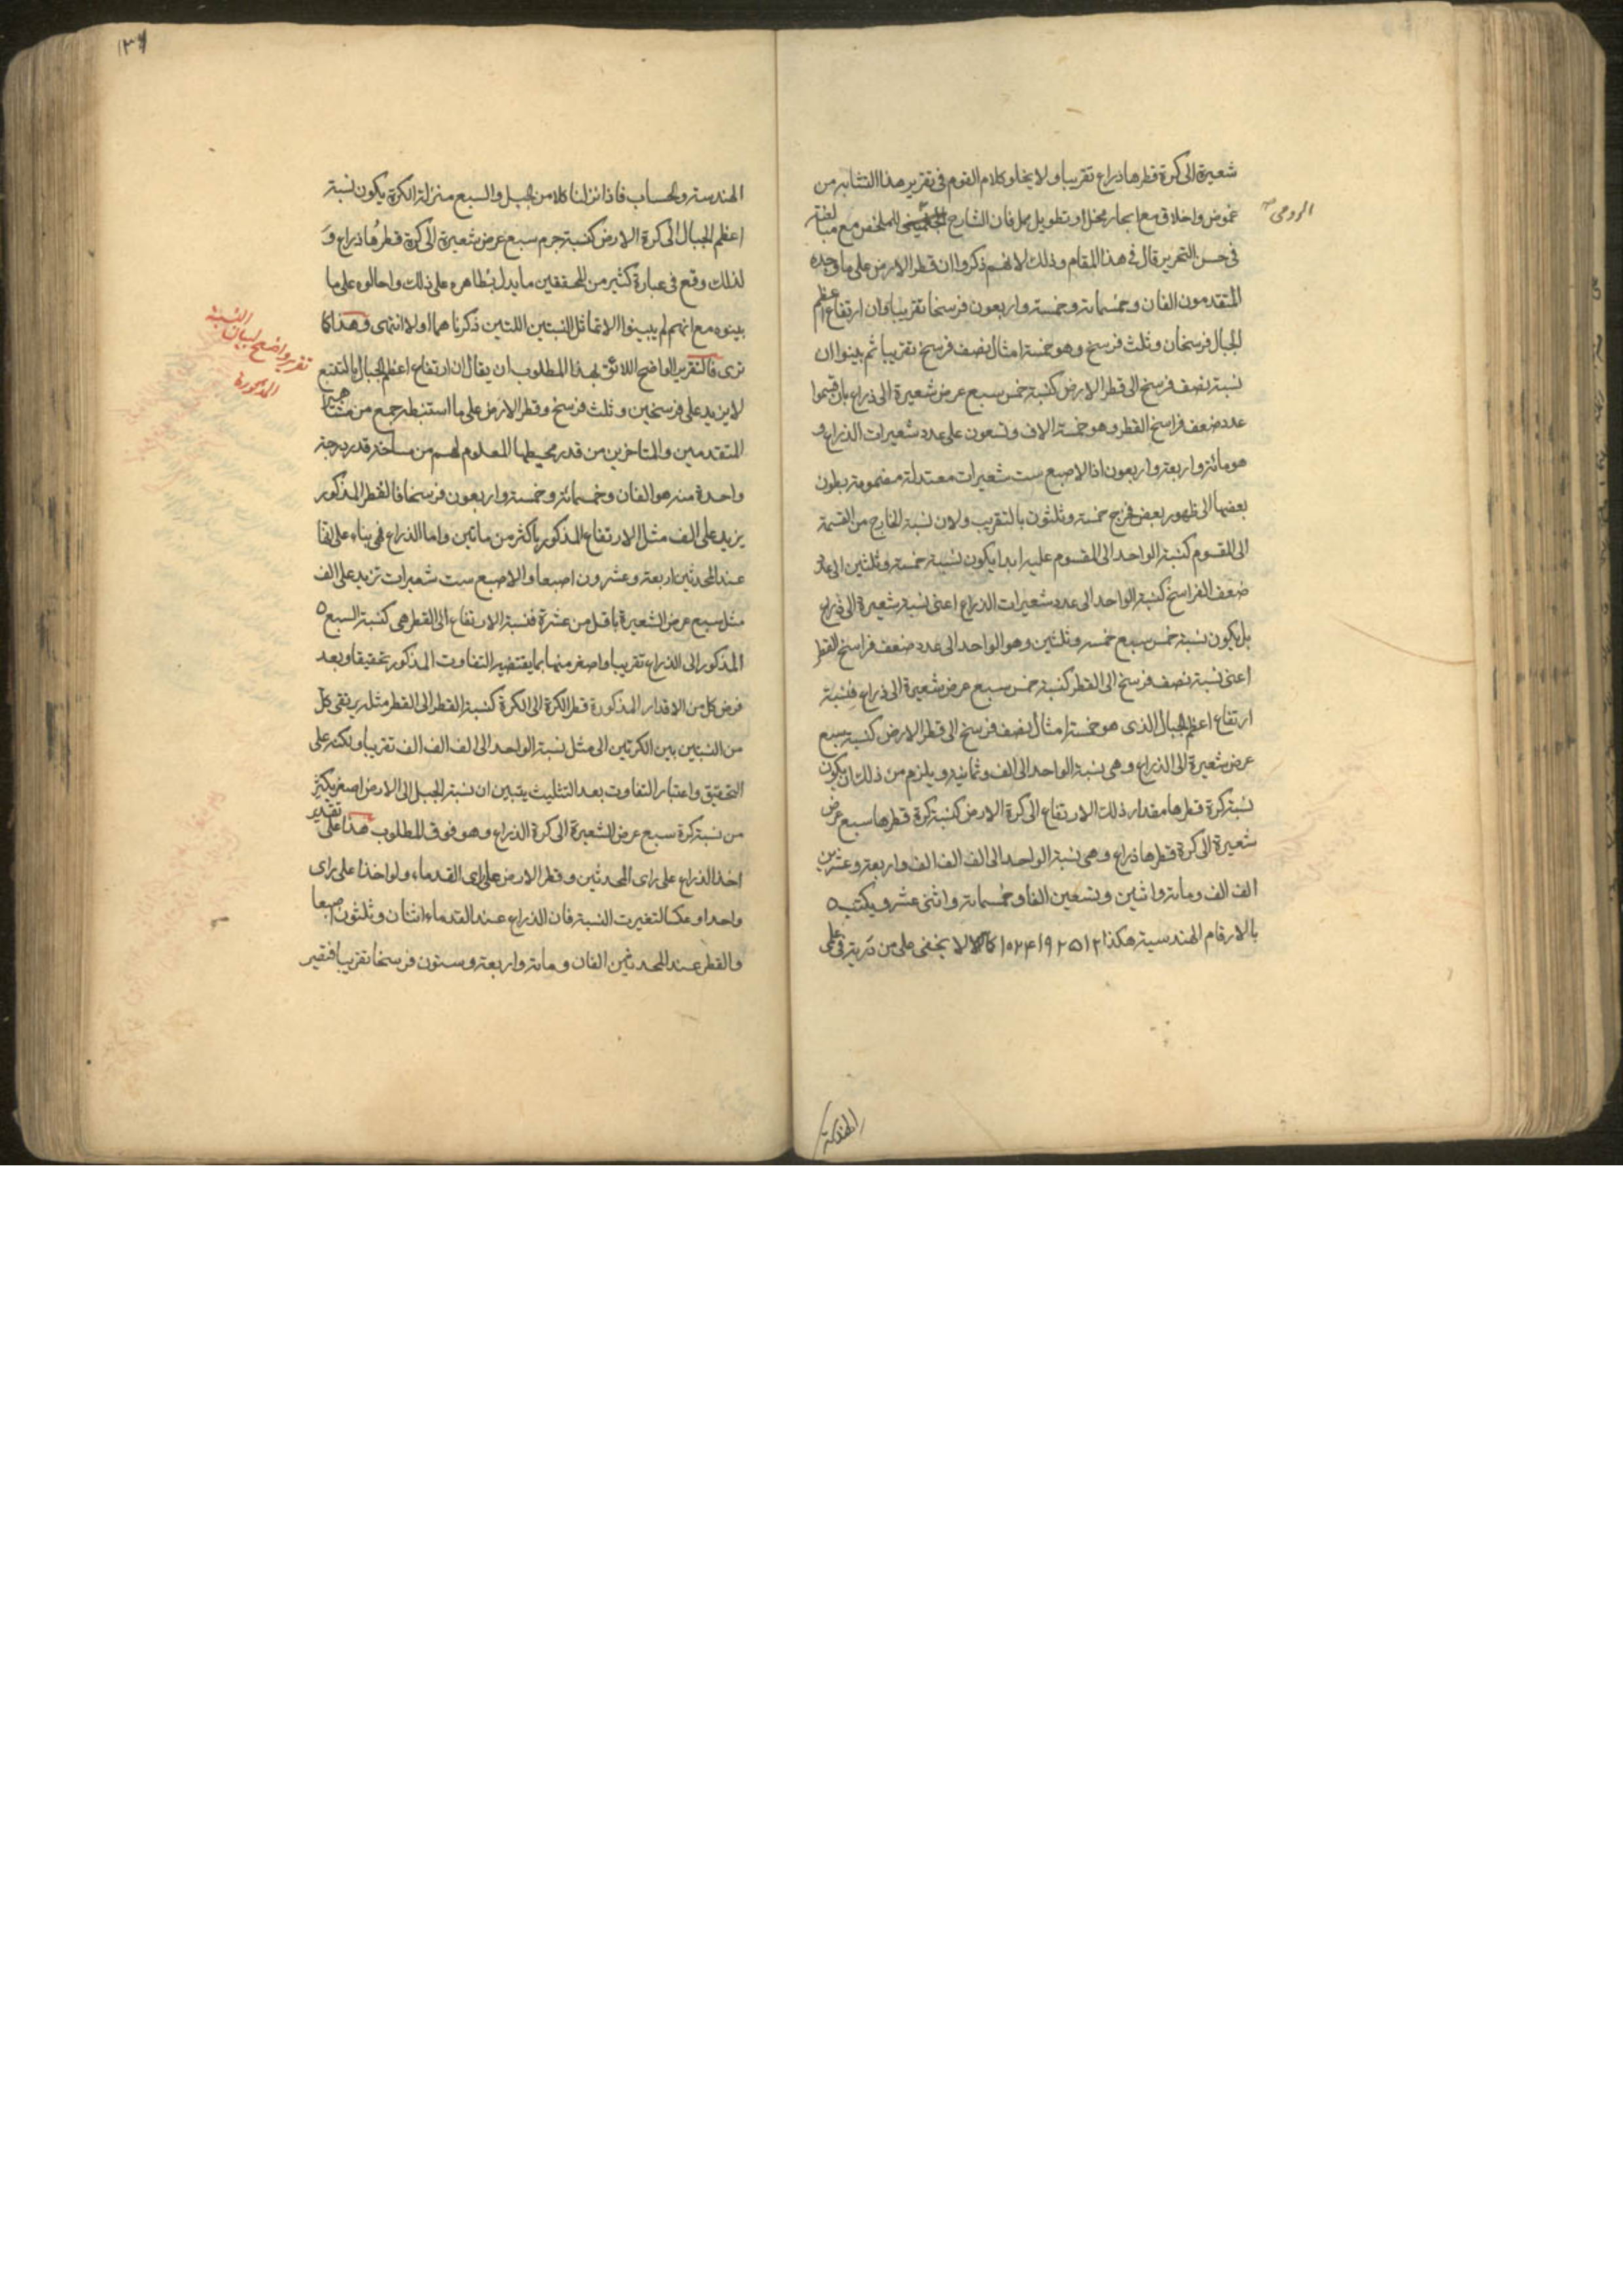 شعيرة الى كرة قطرها ذراع تقريبا ولا يخلو كلام القوم فى تقرير هذا التشابه من
غموض واغلاق مع ايجاز مخل او تطويل ممل فان الشارح للملخص مع مبالغته
الرومى
فى حسن التحرير قال فى هذا المقام وذلك لانهم ذكروا ان قطر الارض على ما وجده
المتقدمون الفان وخمسمائة وخمسة واربعون فرسخا تقريبا وان ارتفاع اعظم
الجبال فرسخان وثلث فرسخ وهو خمسة امثال نصف فرسخ تقريبا ثم بينوا ان
نسبة نصف فرسخ الى قطر الارض كنسبة خمس سبع عرض شعيرة الى ذراع بان قسموا
عدد ضعف فراسخ القطر وهو خمسة الاف وتسعون على عدد شعيرات الذراع و
هو مائة واربعة واربعون اذ الاصبع ست شعيرات معتدلة مضمومة بطون
بعضها الى ظهور بعض فخرج خمسة وثلثون بالتقريب ولان نسبة الخارج من القسمة
الى المقسوم كنسبة الواحد الى المقسوم عليه ابدا يكون نسبة خمسة وثلثين الى عدد
ضعف الفراسخ كنسبة الواحد الى عدد شعيرات الذراع اعنى نسبة شعيرة الى ذراع
بل يكون نسبة خمس سبع خمسة وثلثين وهو الواحد الى عدد ضعف فراسخ القطر
اعنى نسبة نصف فرسخ الى القطر كنسبة خمس سبع عرض شعيرة الى ذراع فنسبة
ارتفاع اعظم الجبال الذى هو خمسة امثال نصف فرسخ الى قطر الارض كنسبة سبع
عرض شعيرة الى الذراع وهى نسبة الواحد الى الف وثمانية ويلزم من ذلك ان يكون
نسبة كرة قطرها مقدار ذلك الارتفاع الى كرة الارض كنسبة كرة قطرها سبع عرض
شعيرة الى كرة قطرها ذراع وهى نسبة الواحد الى الف الف الف واربعة وعشرين
الف الف ومائة واثنين وتسعين الفا وخمسمائة واثنى عشر ويكتب
بالارقام الهندسية هكذا ١٠٢٤١٩٢٥١٢ كما لا يخفى على من دربة فى علمى
الهندسة
١٣٦
الهندسة والحساب فاذا نزلنا كلا من الجبل والسبع منزلة الكرة يكون نسبة
اعظم الجبال الى كرة الارض كنسبة جرم سبع عرض شعيرة الى كرة قطرها ذراع و
لذلك وقع فى عبارة كثير من المحققين ما يدل بظاهره على ذلك واحالوه على ما
بينوه مع انهم لم يبينوا الا تماثل النسبتين اللتين ذكرناهما اولا انتهى وهذا كما
ترى فالتقرير الواضح اللائق بهذا المطلوب ان يقال ان ارتفاع اعظم الجبال بالتتبع
تقرير واضح لبيان النسبة
المذكورة
لا يزيد على فرسخين وثلث فرسخ وقطر الارض على ما استنبطه جمع من مشاهير
المتقدمين والمتاخرين من قدر محيطها المعلوم لهم من مساحة قدر درجة
واحدة منه هو الفان وخمسمائة وخمسة واربعون فرسخا فالقطر المذكور
يزيد على الف مثل الارتفاع المذكور باكثر من مائتين واما الذراع فهى بناء على انها
عند المحدثين اربعة وعشرون اصبعا والاصبع ست شعيرات تزيد على الف
مثل سبع عرض الشعيرة باقل من عشرة فنسبة الارتفاع الى القطر هى كنسبة السبع
المذكور الى الذراع تقريبا واصغر منها بما يقتضيه التفاوت المذكور تحقيقا وبعد
فرض كل من الاقدار المذكورة قطر الكرة الى الكرة كنسبة القطر الى القطر مثلثة يرتقى كل
من النسبتين بين الكرتين الى مثل نسبة الواحد الى الف الف الف تقريبا ولكنه على
التحقيق واعتبار التفاوت بعد التثليث يتبين ان نسبة الجبل الى الارض اصغر بكثير
من نسبة كرة سبع عرض الشعيرة الى كرة الذراع وهو فوق المطلوب هذا على تقدير
اخذ الذراع على راى المحدثين وقطر الارض على راى القدماء ولو اخذا على راى
واحد او عكسا لتغيرت النسبة فان الذراع عند القدماء اثنان وثلثون اصبعا
والقطر عند المحدثين الفان ومائة واربعة وستون فرسخا تقريبا فتغير